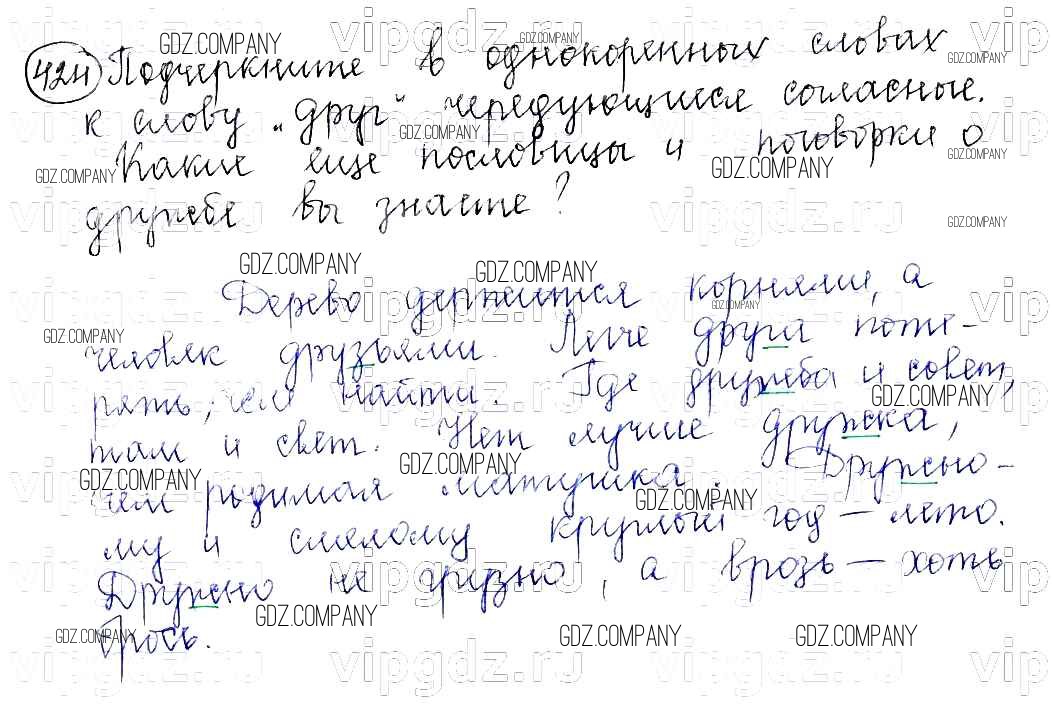 424 Подчеркните в однокоренных словах
к слову „друг" чередующиеся согласные.
Какие еще пословицы и поговорки о
дружбе вы знаете?
Дерево держится корнями, а
человек друзьями. Легче друга поте-
рять, чем найти. Где дружба и совет,
там и свет. Нет лучше дружка,
чем родимая матушка. Дружно-
му и смелому круглый год – лето.
Дружно не грузно, а врозь – хоть
брось.
GDZ.COMPANY
vipgdz.ru